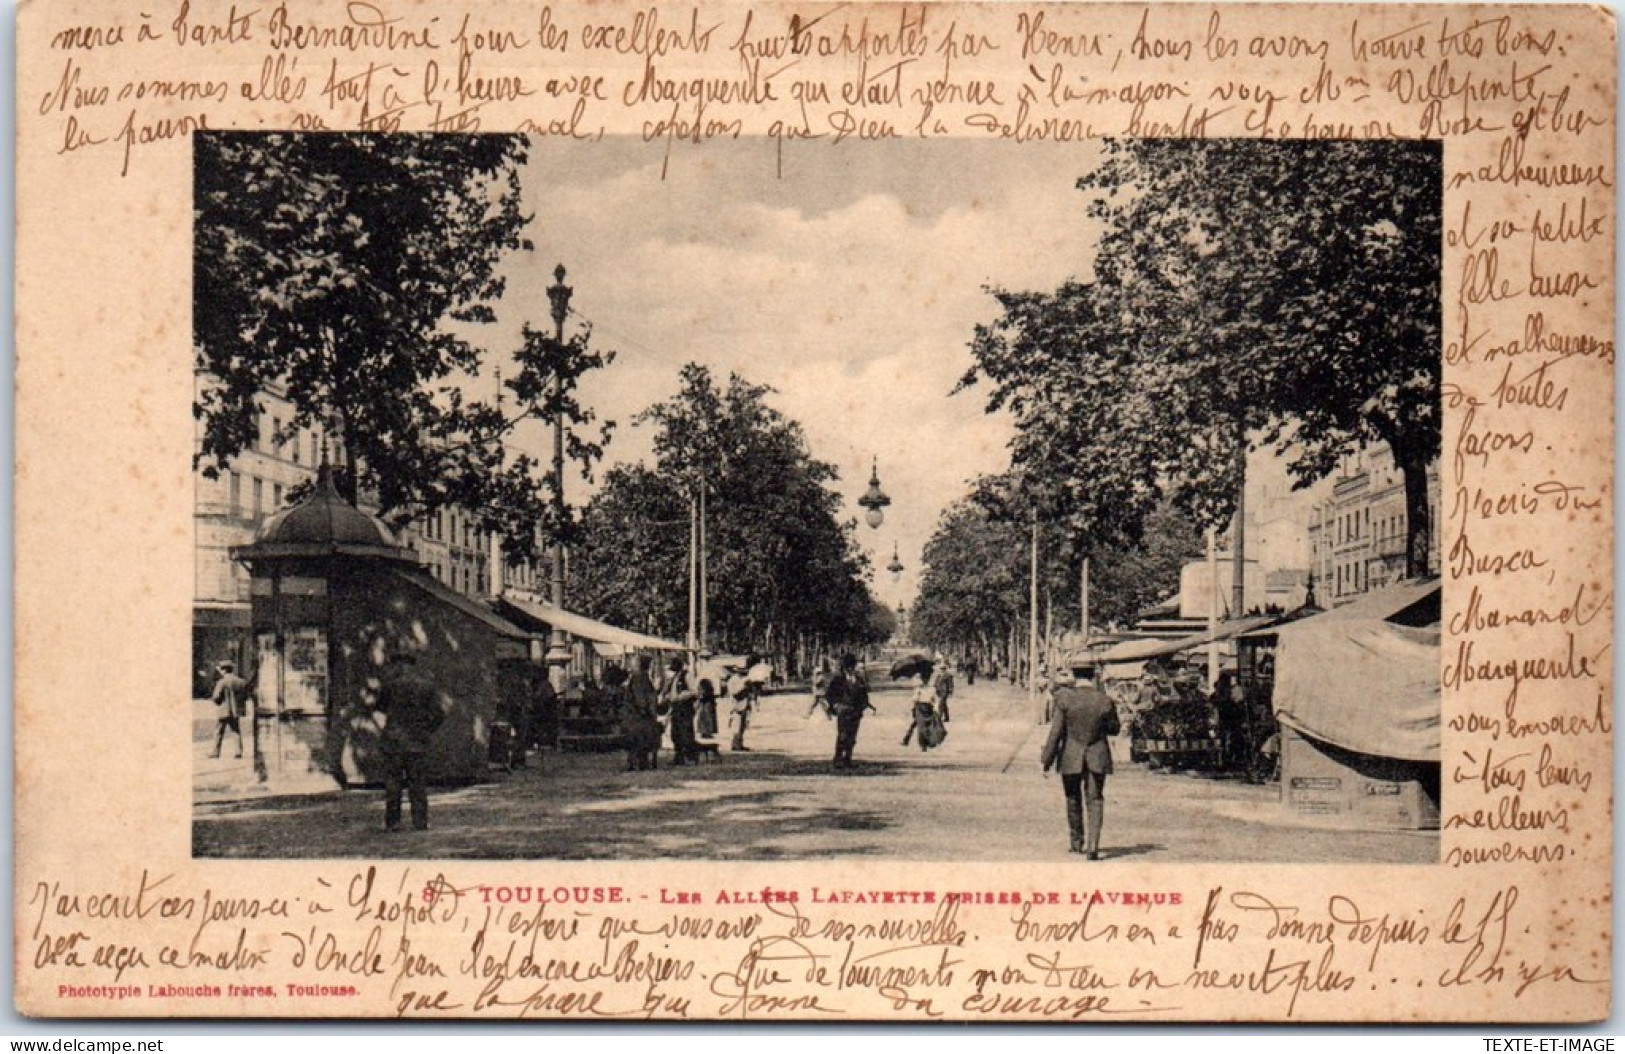 merci à tante Bernardine pour les excellents fruits apportés par Henri, nous les avons trouvé très bons.
Nous sommes allés tout à l'heure avec Marguerite qui était venue à la maison voir Mme Villepinte
la pauvre .. va très très mal, espérons que Dieu la délivrera bientôt Le pauvre Rose est bien
malheureuse
et sa petite
fille aussi
et malheureuses
de toutes
façons.
J'écris du
Busca,
Maman et
Marguerite
vous envoient
à tous leurs
meilleurs
souvenirs.
8. - TOULOUSE. - LES ALLÉES LAFAYETTE PRISES DE L'AVENUE
J'ai écrit ces jours-ci à Léopold, j'espère que vous avez de ses nouvelles. Ernest n'en a pas donné depuis le 15.
On a reçu ce matin d'Oncle Jean il est encore à Béziers. Que de tourments mon Dieu on ne vit plus... il n'y a
que la prière qui donne du courage -
Phototypie Labouche frères, Toulouse.
delcampe.net
TEXTE-ET-IMAGE